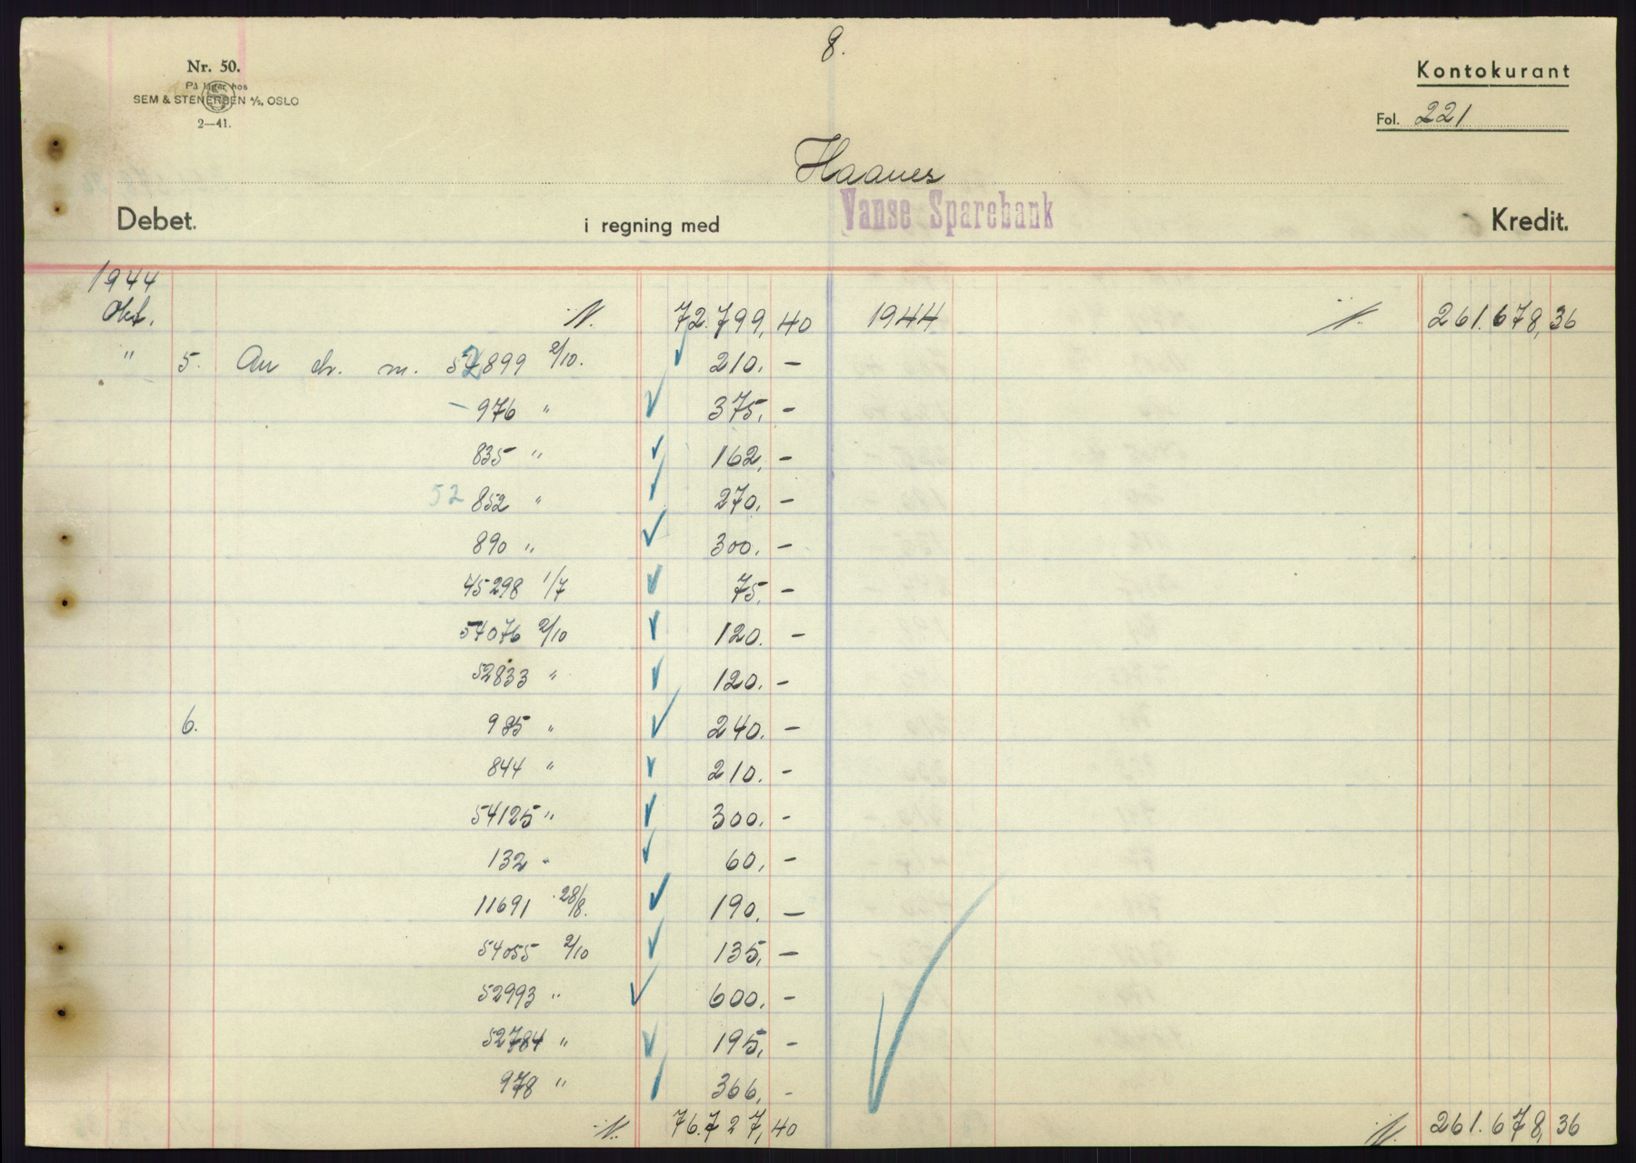 8.
Nr. 50.
På lager hos
SEM & STENERSEN A/S, OSLO
2—41.
Kontokurant
Fol. 221
Haanes
Debet. i regning med Vanse Sparebank Kredit.
1944
Okt. 72.799,40 1944 261.678,36
" 5. An ch. m. 52899 2/10. 210.-
- 976 " 375,-
835 " 162,-
52 852 " 270,-
890 " 300.-
45298 1/7 75,-
54076 2/10 120.-
52833 " 120.-
6. 985 " 240.-
844 " 210.-
54125 " 300.-
132 " 60,-
11691 28/8. 190.-
54055 2/10 135,-
52993 " 600.-
52784 " 195,-
978 " 366,-
76.727,40 261.678,36